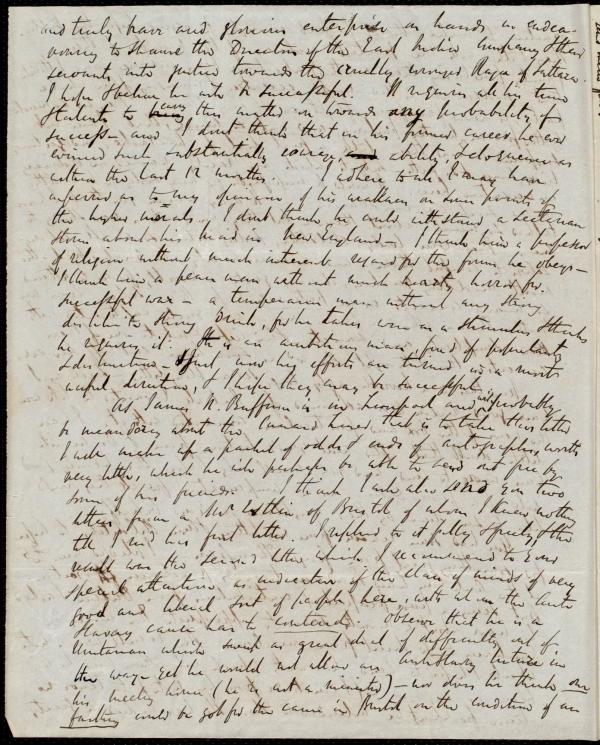 and truly brave and glorious enterprise on hands in endea-
vouring to shame the Directors of the East India Company & their
servants into justice towards the cruelly wronged Raja of Sattara.
I hope & believe he will be successful. It requires all his time
& talents to carry this matter on towards any probability of
success - and I don't think that in his former career he ever
evinced such substantially courage, and ability, & eloquence as
within the last 12 months. I adhere to all I may have
expressed as to my opinion of his weakness on some points of
the higher morals. I don't think he could withstand a Sectarian
storm about his head in New England - I think him a professor
of religion without much inherent regard for the form he obeys -
I think him a peace man without much hearty horror for
successful war - a temperance man without any strong
dislike to strong drink, for he takes wine as a stimulus & thinks
he requires it. He is an ambitious man, fond of popularity
& distinction - & just now his efforts are turned in a most
useful direction, & I hope they may be successful.
As James N. Buffum is in Liverpool and will probably
be meandering about the Cunard liner that is to take this letter
I will make up a packet of odds & ends of autographs, worth
very little, which he will perhaps be able to send out free by
some of his friends. I think I will also send you two
letters from a Mr of Bristol of whom I knew nothing
till I had his first letter. I replied to it fully & freely & the
result was the second letter which I recommend to your
special attention as indicative of the class of minds of very
good and liberal sort of people here, with whom the Anti
Slavery cause has to contend. Observe that he is a
Unitarian which sweeps a great deal of difficulty out of
the way - yet he would not allow an Antislavery lecture in
his meeting house (he is not a minister) - nor does he think one
farthing could be got for the cause in Bristol on the condition of an